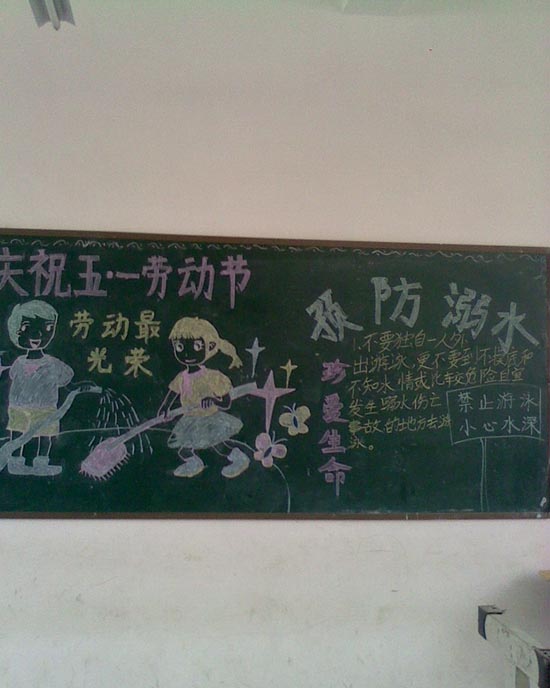 庆祝五·一劳动节
劳动最
光荣
预防溺水
珍爱生命
1.不要独自一人外
出游泳,更不要到不摸底和
不知水情或比较危险且宜
发生溺水伤亡
事故的地方去游
泳。
禁止游泳
小心水深